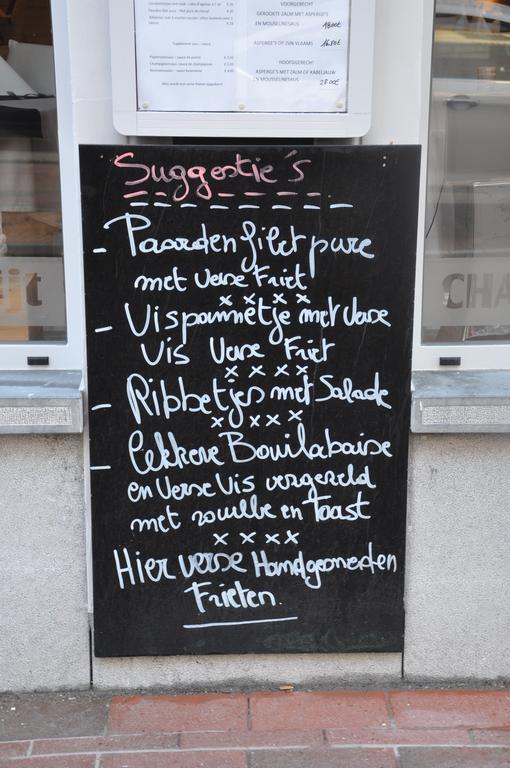 VOORGERECHT
GEROOKTE ZALM MET ASPERGE'S
EN MOUSSELINESAUS 18.00€
ASPERGE'S OP ZIJN VLAAMS 16.50€
HOOFDGERECHT
ASPERGE'S MET ZALM OF KABELJAUW
EN MOUSSELINESAUS 28.00€
Supplement saus - sauce
Suggestie's
- Paardenfilet pure
met Verse Friet
x x x x
- Vispannetje met Verse
Vis Verse Friet
x x x x
- Ribbetjes met Salade
x x x x
- Lekkere Bouilabaise
en Verse Vis vergezeld
met rouille en Toast
x x x x
Hier verse Handgesneden
Frieten.
ijt
CHA